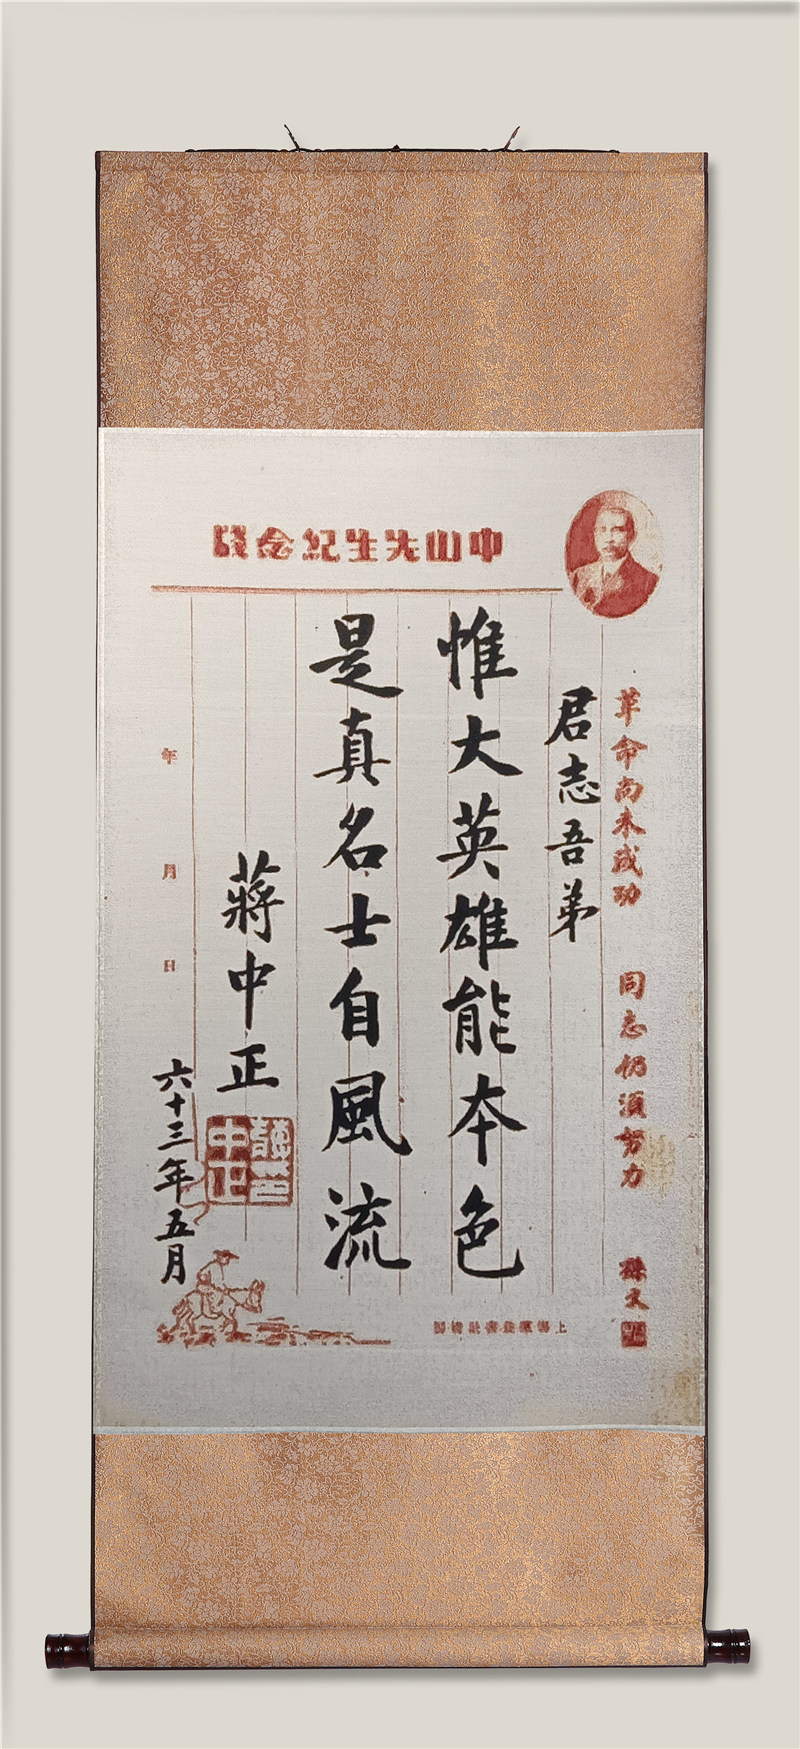 中山先生紀念牋
革命尚未成功 同志仍須努力 孫文
君志吾弟
惟大英雄能本色
是真名士自風流
蔣中正
蔣中正
六十三年五月
年 月 日